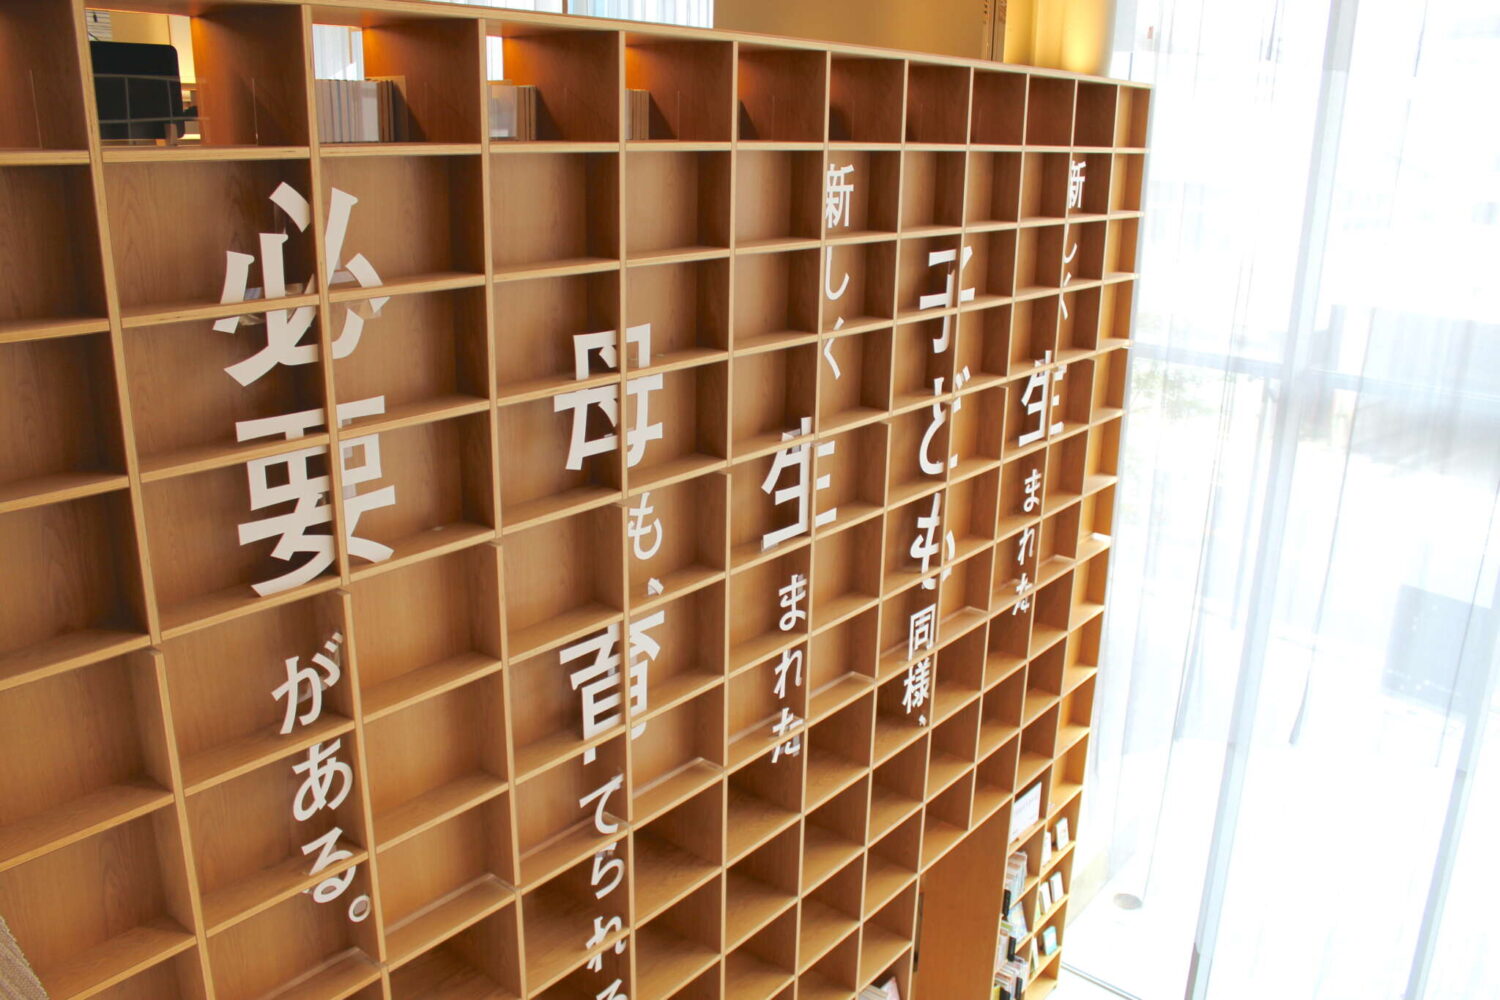 新しく生まれた
子ども同様、
新しく生まれた
母も、育てられる
必要がある。